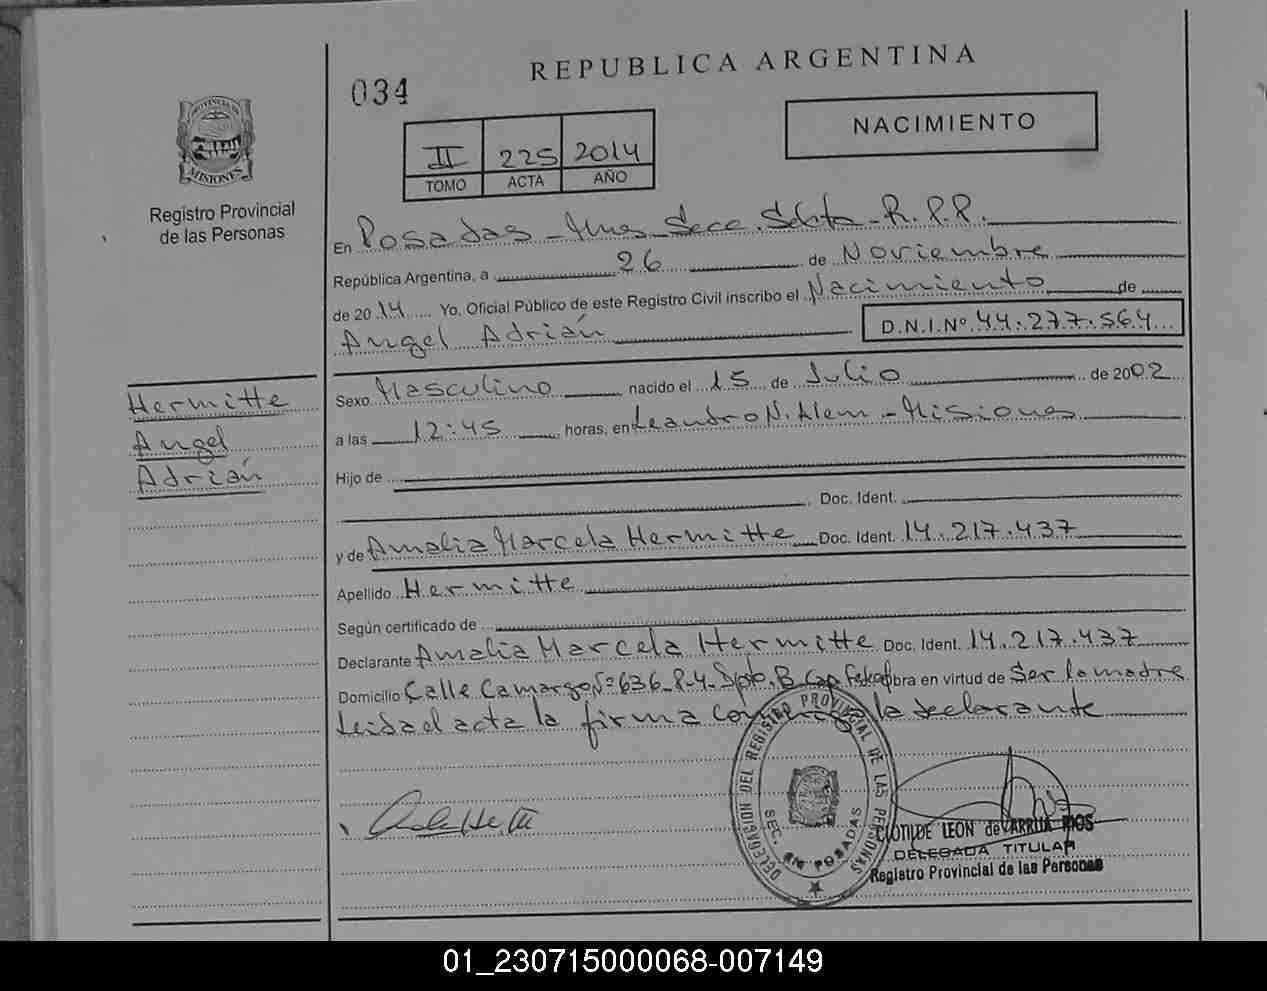 REPUBLICA ARGENTINA
034
NACIMIENTO
II 225 2014
TOMO ACTA AÑO
PROVINCIA DE
MISIONES
Registro Provincial
de las Personas
En Posadas - Mnes Secc. Sexta - R.P.P.
República Argentina, a 26 de Noviembre
de 2014 Yo, Oficial Público de este Registro Civil inscribo el Nacimiento de
Angel Adrián D.N.I.Nº 44.277.564
Hermitte
Angel
Adrián
Sexo Masculino nacido el 15 de Julio de 2002
a las 12:45 horas, en Leandro N. Alem - Misiones
Hijo de
Doc. Ident.
y de Amalia Marcela Hermitte Doc. Ident. 14.217.437
Apellido Hermitte
Según certificado de
Declarante Amalia Marcela Hermitte Doc. Ident. 14.217.437
Domicilio Calle Camargo Nº 636 P-4 Dpto. B Cap. Fed. obra en virtud de Ser la madre
Leida el acta la firma conmigo la declarante
DELEGACION DEL REGISTRO PROVINCIAL DE LAS PERSONAS
SEC. POSADAS
CLOTILDE LEON de ARRUA RIOS
DELEGADA TITULAR
Registro Provincial de las Personas
01_230715000068-007149